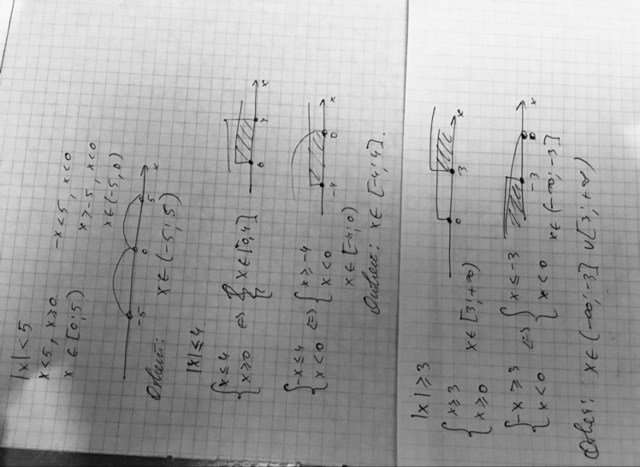 |x| < 5
x < 5, x ≥ 0. -x < 5, x < 0
x ∈ [0; 5) x > -5, x < 0
x ∈ (-5; 0)
-5 0 5 x
Ответ: x ∈ (-5; 5)
|x| ≤ 4
{ x ≤ 4
{ x ≥ 0 ⇔ x ∈ [0, 4]
0 4 x
{ -x ≤ 4
{ x < 0 ⇔ { x ≥ -4
{ x < 0
-4 0 x
x ∈ [-4; 0)
Ответ: x ∈ [-4; 4].
|x| ≥ 3
{ x ≥ 3
{ x ≥ 0 x ∈ [3; +∞)
0 3 x
{ -x ≥ 3
{ x < 0 ⇔ { x ≤ -3
{ x < 0
-3 0 x
x ∈ (-∞; -3]
Ответ: x ∈ (-∞; -3] ∪ [3; +∞)